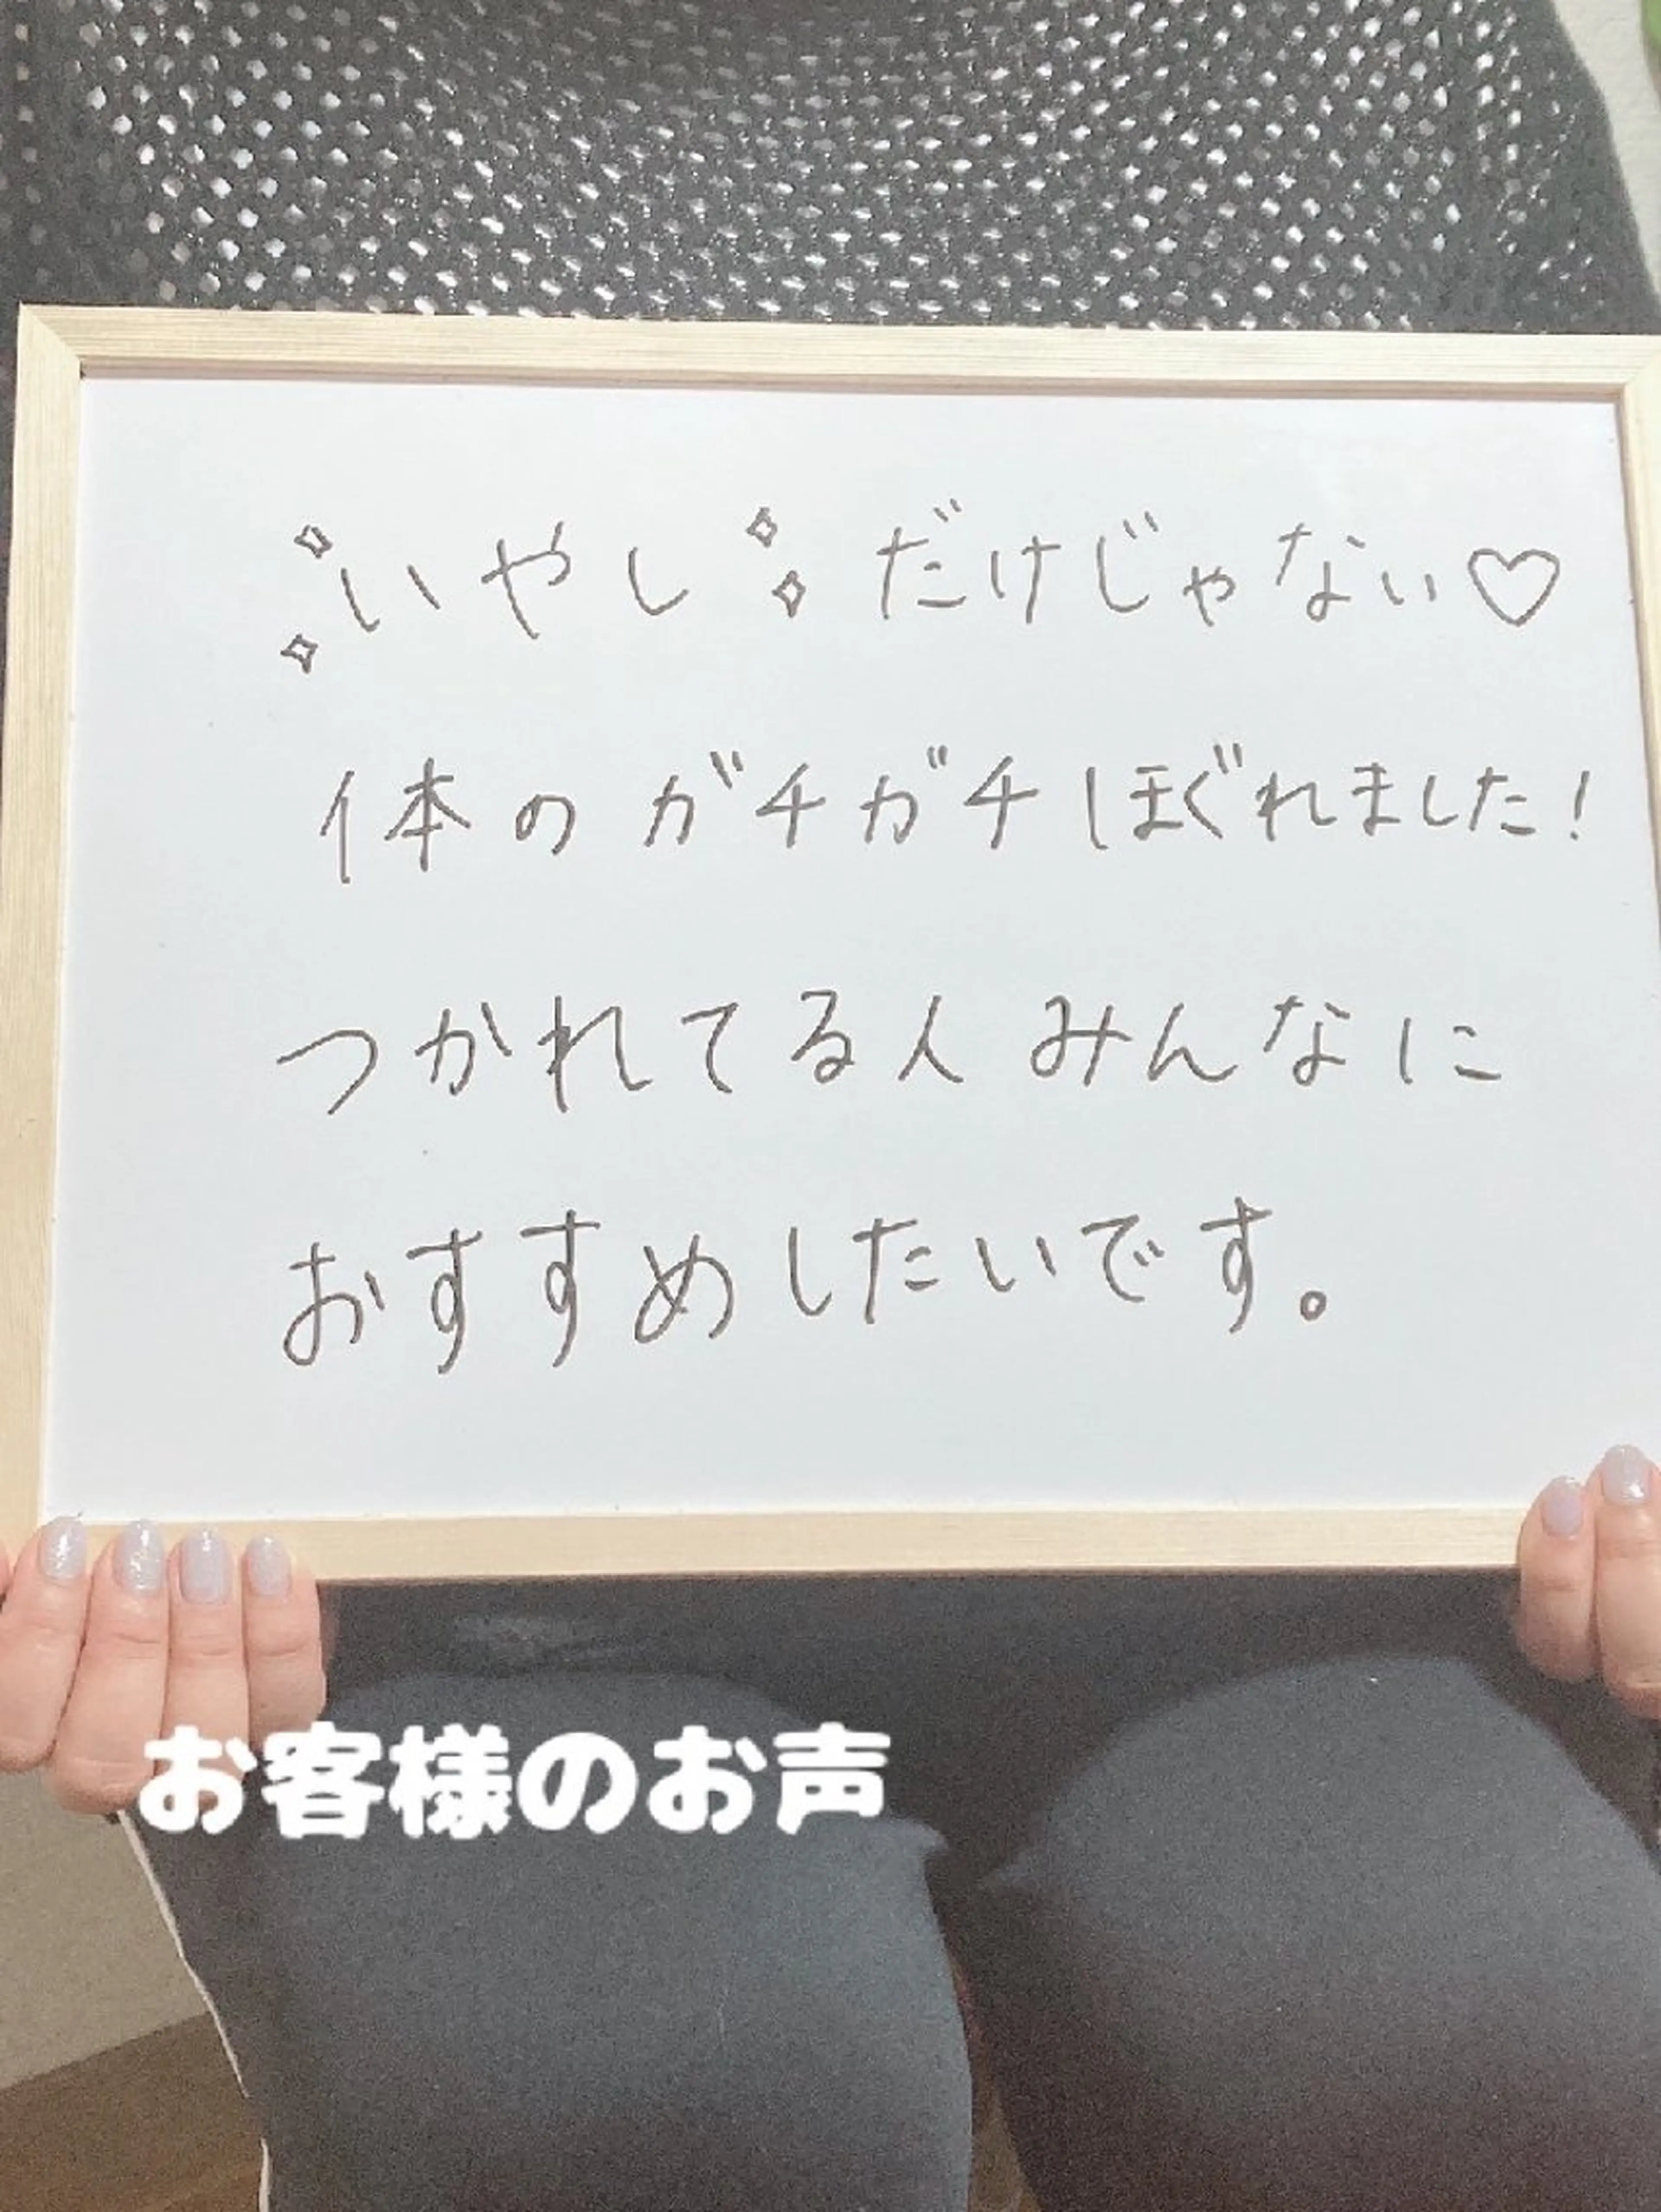 いやし だけじゃない♡
体のガチガチほぐれました!
つかれてる人みんなに
おすすめしたいです。
お客様のお声